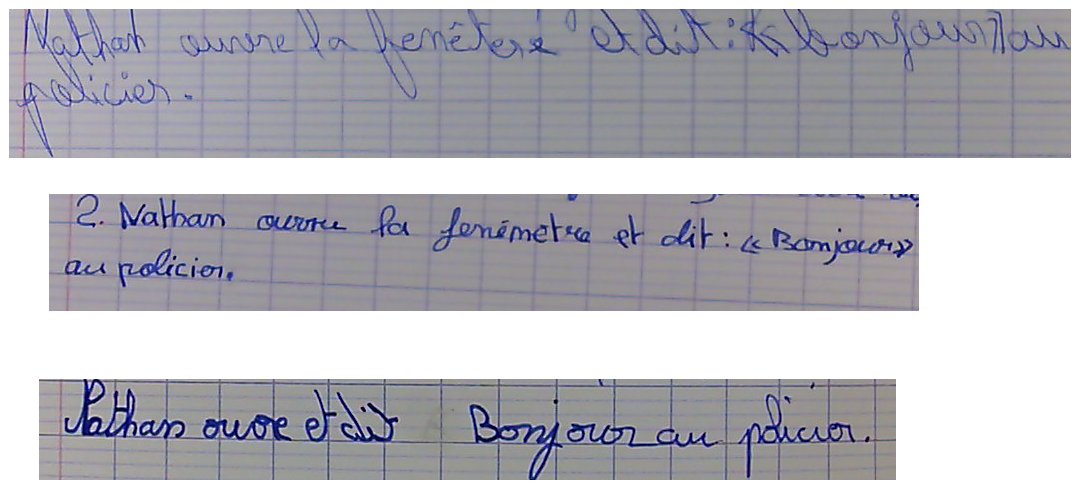 Nathan ouvre la fenêtere et dit : « bonjour » au
policier.
2. Nathan ouvre la fenêmetre et dit : « Bonjour »
au policier.
Nathan ouvre et dit Bonjour au policier.